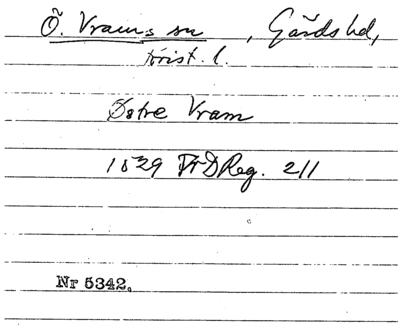 Ö. Vrams sn, Gärds hd,
Krist. l.
Østre Vram
1629 Fr D Reg. 211
Nr 5342.